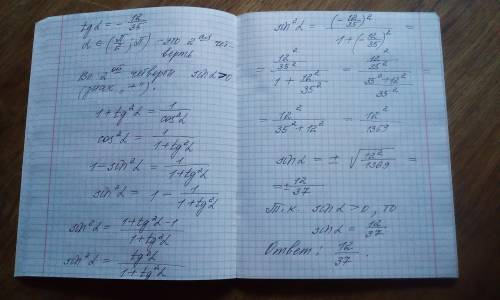 tg α = - 12/35
α ∈ (π/2; π) - это 2ая чет-
верть
Во 2ой четверти sin α > 0
(знак "+").
1 + tg²α = 1/cos²α
cos²α = 1/(1 + tg²α)
1 - sin²α = 1/(1 + tg²α)
sin²α = 1 - 1/(1 + tg²α)
sin²α = (1 + tg²α - 1)/(1 + tg²α)
sin²α = tg²α/(1 + tg²α)
sin²α = (-12/35)²/(1 + (-12/35)²) =
= (12²/35²)/(1 + 12²/35²) = (12²/35²)/((35² + 12²)/35²)
= 12²/(35² + 12²) = 12²/1369
sin α = ± √(12²/1369) =
= ± 12/37
Т.к. sin α > 0, то
sin α = 12/37
Ответ: 12/37.